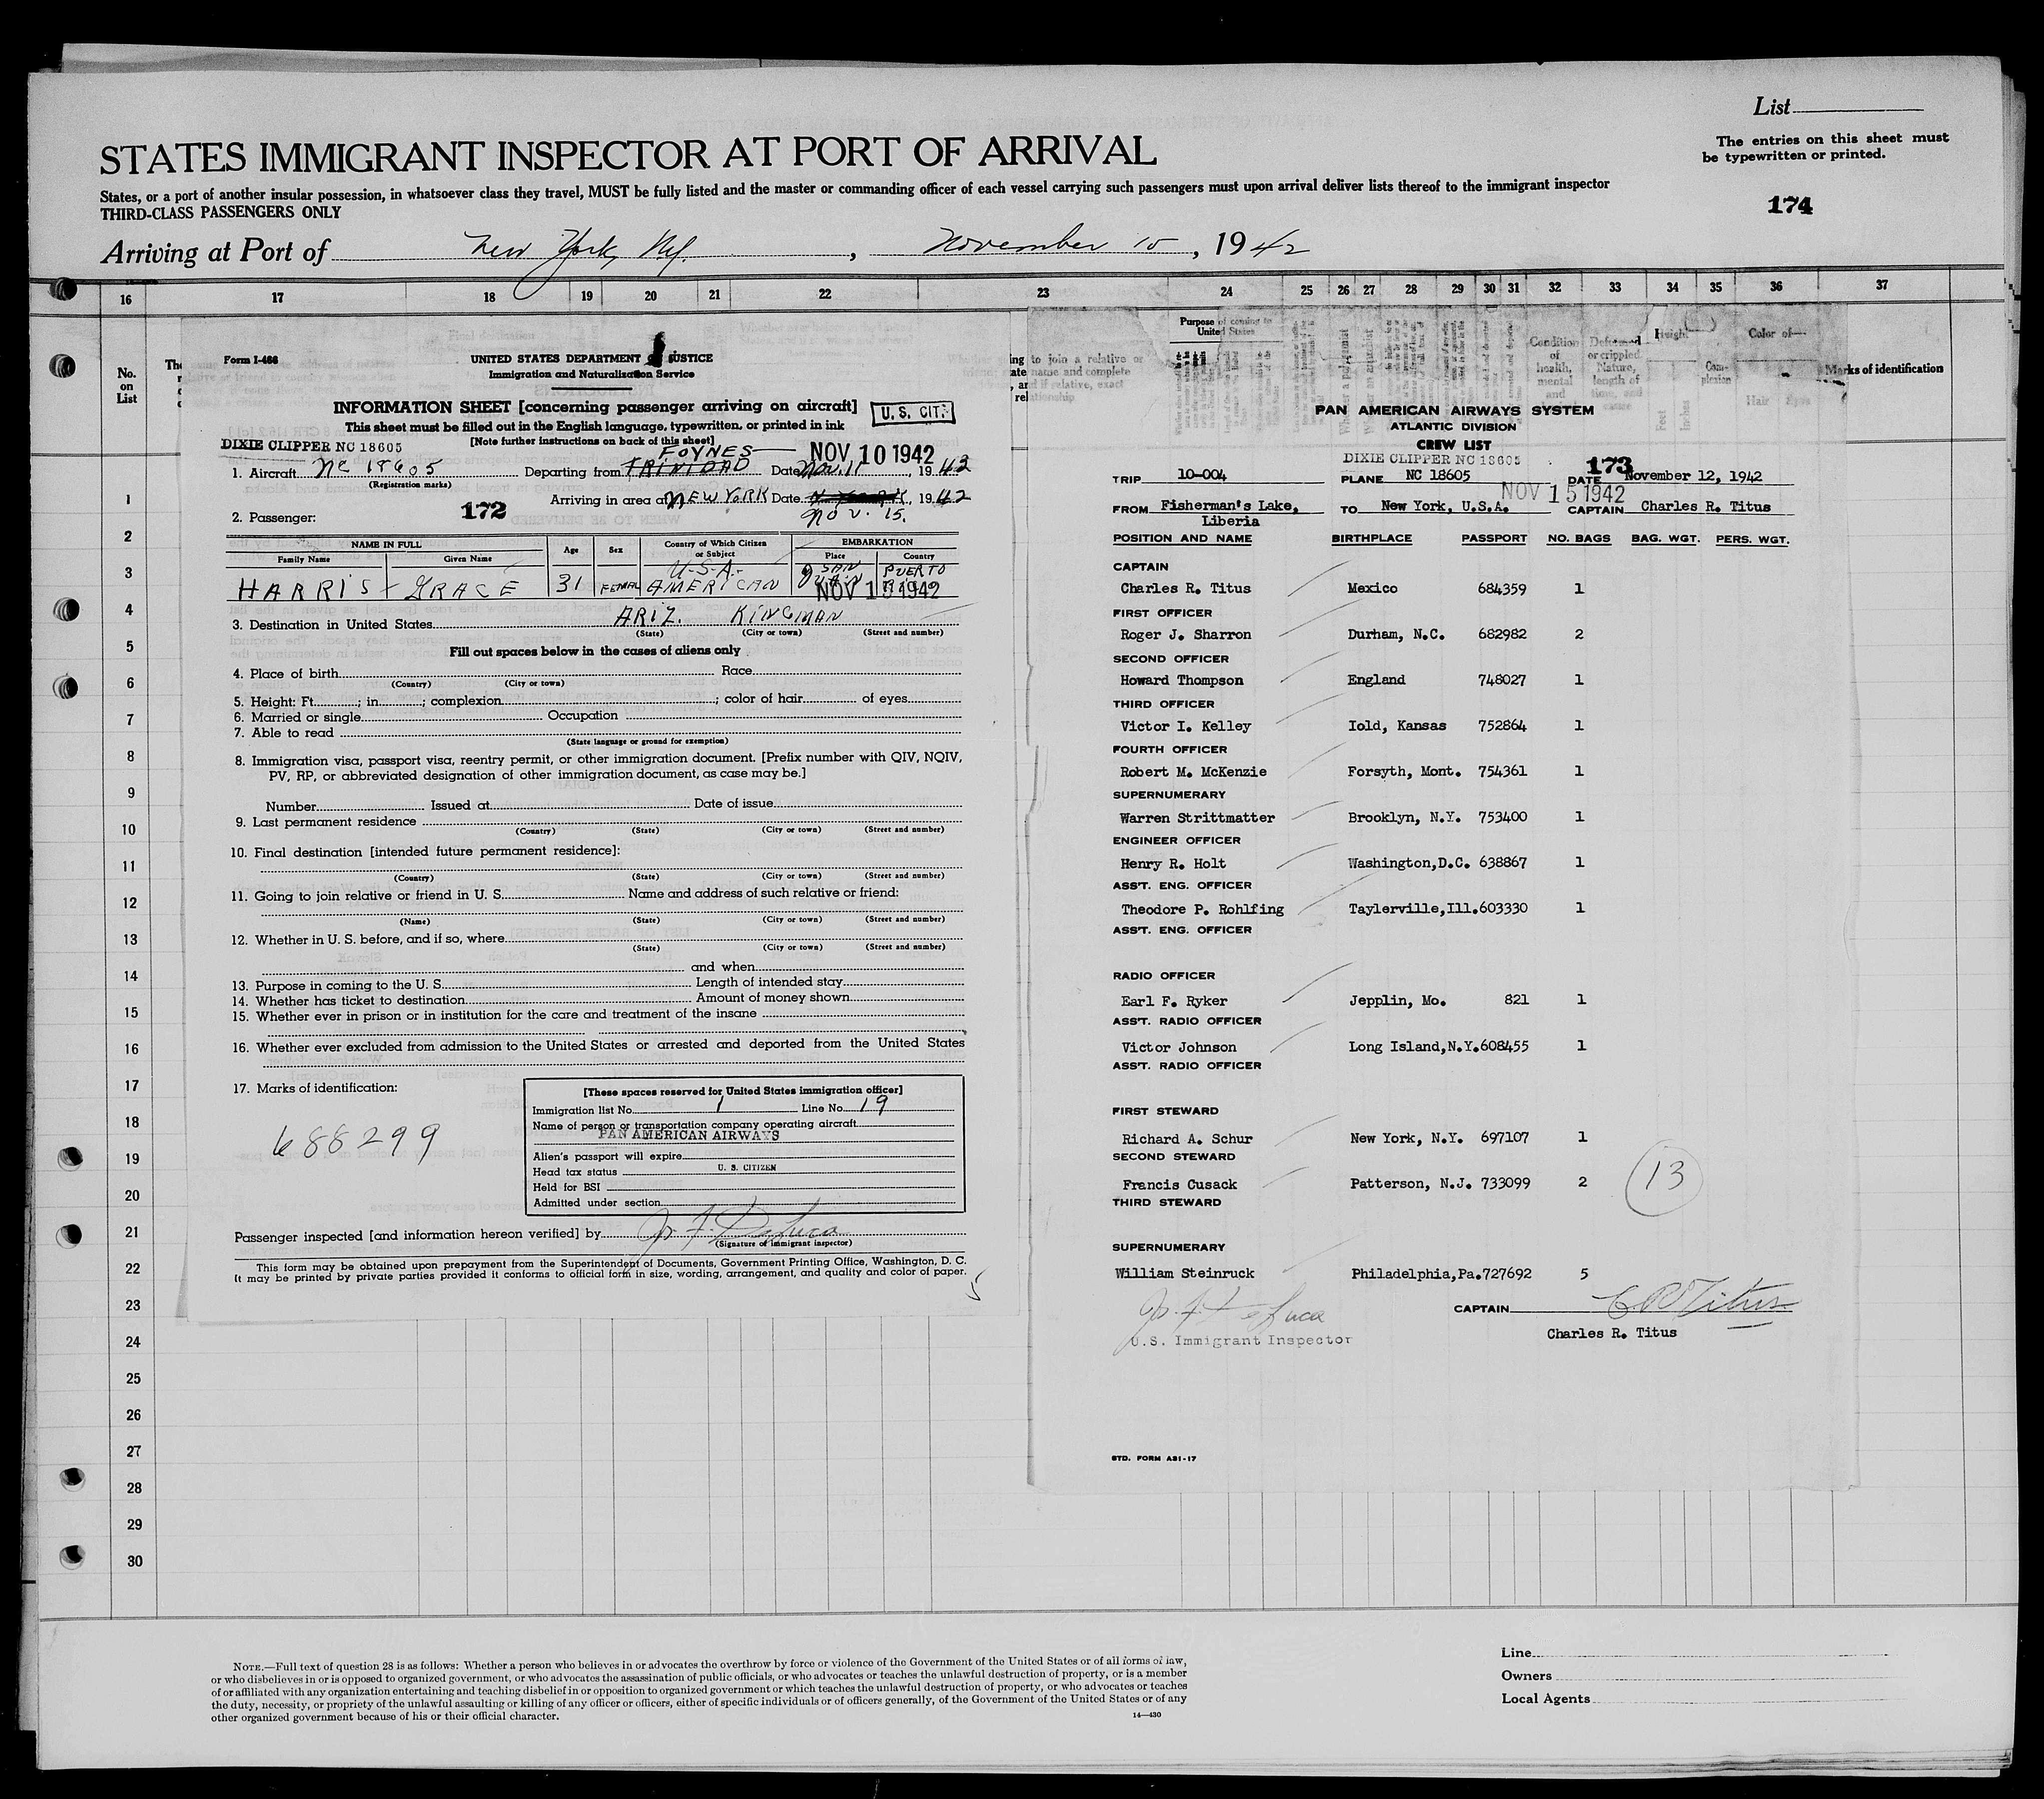 List
The entries on this sheet must
be typewritten or printed.
174
STATES IMMIGRANT INSPECTOR AT PORT OF ARRIVAL
States, or a port of another insular possession, in whatsoever class they travel, MUST be fully listed and the master or commanding officer of each vessel carrying such passengers must upon arrival deliver lists thereof to the immigrant inspector
THIRD-CLASS PASSENGERS ONLY
Arriving at Port of New York, NY. , November 15, 1942
16 17 18 19 20 21 22 23 24 25 26 27 28 29 30 31 32 33 34 35 36 37
No.
on
List
Purpose of coming to
United States
to join a relative or
name and complete
if relative, exact
relationship
Condition
of
health,
mental
and
Deformed
or crippled.
Nature,
length of
time, and
cause
Height
Feet
Inches
Com-
plexion
Color of—
Hair Eyes
Marks of identification
1
2
3
4
5
6
7
8
9
10
11
12
13
14
15
16
17
18
19
20
21
22
23
24
25
26
27
28
29
30
Form I-466
UNITED STATES DEPARTMENT OF JUSTICE
Immigration and Naturalization Service
INFORMATION SHEET [concerning passenger arriving on aircraft]
U. S. CIT.
This sheet must be filled out in the English language, typewritten, or printed in ink
[Note further instructions on back of this sheet]
DIXIE CLIPPER NC 18605
FOYNES
NOV 10 1942
1. Aircraft NC 18605 Departing from TRINIDAD Date Nov. 11, 1942
(Registration marks)
Arriving in area of NEW YORK Date , 1942
Nov. 15.
172
2. Passenger:
NAME IN FULL
Family Name Given Name
Age
Sex
Country of Which Citizen
or Subject
EMBARKATION
Place Country
HARRIS GRACE 31 FEMAL U.S.A. AMERICAN SAN JUAN PUERTO RICO
NOV 15 1942
3. Destination in United States ARIZ. KINGMAN
(State) (City or town) (Street and number)
Fill out spaces below in the cases of aliens only
4. Place of birth Race
(Country) (City or town)
5. Height: Ft. ; in. ; complexion ; color of hair of eyes
6. Married or single Occupation
7. Able to read
(State language or ground for exemption)
8. Immigration visa, passport visa, reentry permit, or other immigration document. [Prefix number with QIV, NQIV,
PV, RP, or abbreviated designation of other immigration document, as case may be.]
Number Issued at Date of issue
9. Last permanent residence
(Country) (State) (City or town) (Street and number)
10. Final destination [intended future permanent residence]:
(Country) (State) (City or town) (Street and number)
11. Going to join relative or friend in U. S. Name and address of such relative or friend:
(Name) (State) (City or town) (Street and number)
12. Whether in U. S. before, and if so, where
(State) (City or town) (Street and number)
and when
13. Purpose in coming to the U. S. Length of intended stay
14. Whether has ticket to destination Amount of money shown
15. Whether ever in prison or in institution for the care and treatment of the insane
16. Whether ever excluded from admission to the United States or arrested and deported from the United States
17. Marks of identification:
688299
[These spaces reserved for United States immigration officer]
Immigration list No. 1 Line No. 19
Name of person or transportation company operating aircraft
PAN AMERICAN AIRWAYS
Alien's passport will expire
Head tax status U. S. CITIZEN
Held for BSI
Admitted under section
Passenger inspected [and information hereon verified] by Jo. F. DeLuca
(Signature of immigrant inspector)
This form may be obtained upon prepayment from the Superintendent of Documents, Government Printing Office, Washington, D. C.
It may be printed by private parties provided it conforms to official form in size, wording, arrangement, and quality and color of paper.
5
PAN AMERICAN AIRWAYS SYSTEM
ATLANTIC DIVISION
CREW LIST
DIXIE CLIPPER NC 18605
173
TRIP 10-004 PLANE NC 18605 DATE November 12, 1942
NOV 15 1942
FROM Fisherman's Lake, TO New York, U.S.A. CAPTAIN Charles R. Titus
Liberia
POSITION AND NAME BIRTHPLACE PASSPORT NO. BAGS BAG. WGT. PERS. WGT.
CAPTAIN
Charles R. Titus Mexico 684359 1
FIRST OFFICER
Roger J. Sharron Durham, N.C. 682982 2
SECOND OFFICER
Howard Thompson England 748027 1
THIRD OFFICER
Victor I. Kelley Iold, Kansas 752864 1
FOURTH OFFICER
Robert M. McKenzie Forsyth, Mont. 754361 1
SUPERNUMERARY
Warren Strittmatter Brooklyn, N.Y. 753400 1
ENGINEER OFFICER
Henry R. Holt Washington,D.C. 638867 1
ASS'T. ENG. OFFICER
Theodore P. Rohlfing Taylerville,Ill.603330 1
ASS'T. ENG. OFFICER
RADIO OFFICER
Earl F. Ryker Jepplin, Mo. 821 1
ASS'T. RADIO OFFICER
Victor Johnson Long Island,N.Y.608455 1
ASS'T. RADIO OFFICER
FIRST STEWARD
Richard A. Schur New York, N.Y. 697107 1
SECOND STEWARD
Francis Cusack Patterson, N.J. 733099 2
THIRD STEWARD
13
SUPERNUMERARY
William Steinruck Philadelphia,Pa.727692 5
Jo. F. DeLuca
U.S. Immigrant Inspector
CAPTAIN C R Titus
Charles R. Titus
STD. FORM A31-17
NOTE.—Full text of question 28 is as follows: Whether a person who believes in or advocates the overthrow by force or violence of the Government of the United States or of all forms of law,
or who disbelieves in or is opposed to organized government, or who advocates the assassination of public officials, or who advocates or teaches the unlawful destruction of property, or is a member
of or affiliated with any organization entertaining and teaching disbelief in or opposition to organized government or which teaches the unlawful destruction of property, or who advocates or teaches
the duty, necessity, or propriety of the unlawful assaulting or killing of any officer or officers, either of specific individuals or of officers generally, of the Government of the United States or of any
other organized government because of his or their official character.
14—430
Line
Owners
Local Agents